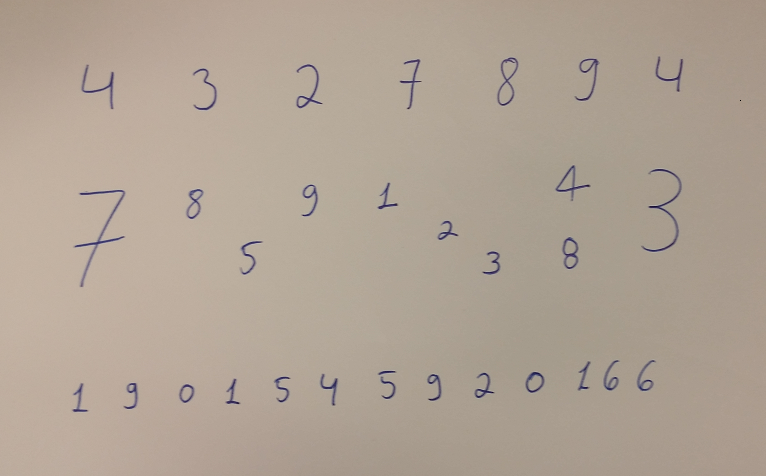 4 3 2 7 8 9 4
7 8 5 9 1 2 3 4 8 3
1 9 0 1 5 4 5 9 2 0 1 6 6